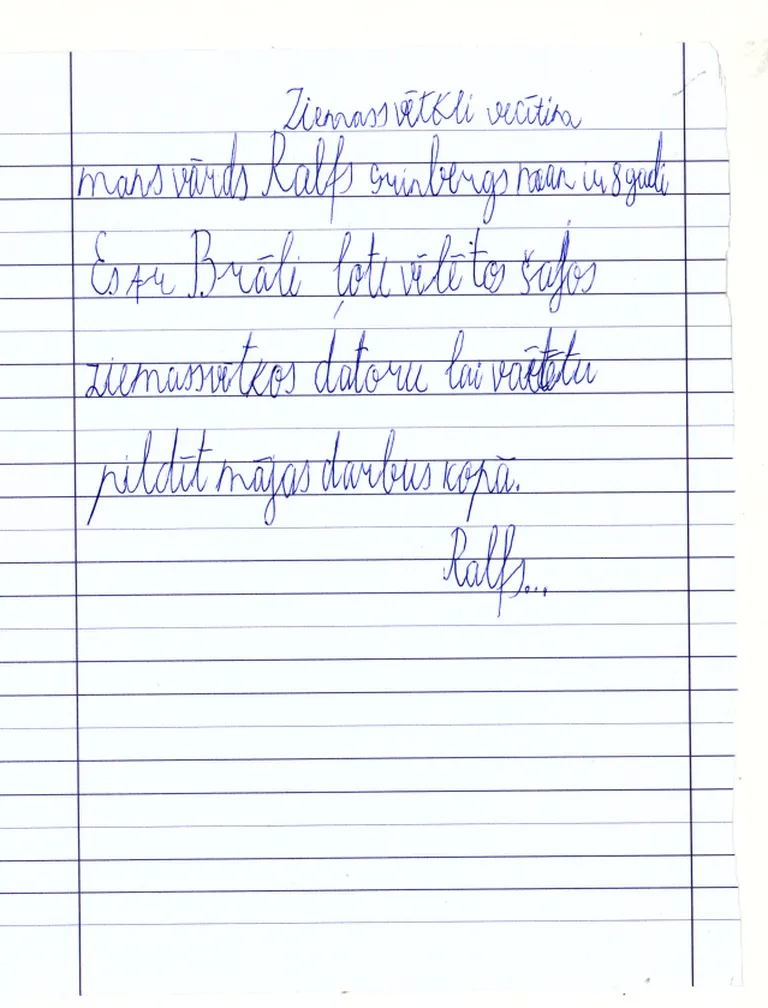 Ziemassvētkli vecītiņa
mans vārds Ralfs Grinbergs man ir 8 gadi
Es ar Brāli ļoti vēlētos šajos
ziemassvētkos datoru lai varētu
pildīt mājas darbus kopā.
Ralfs...